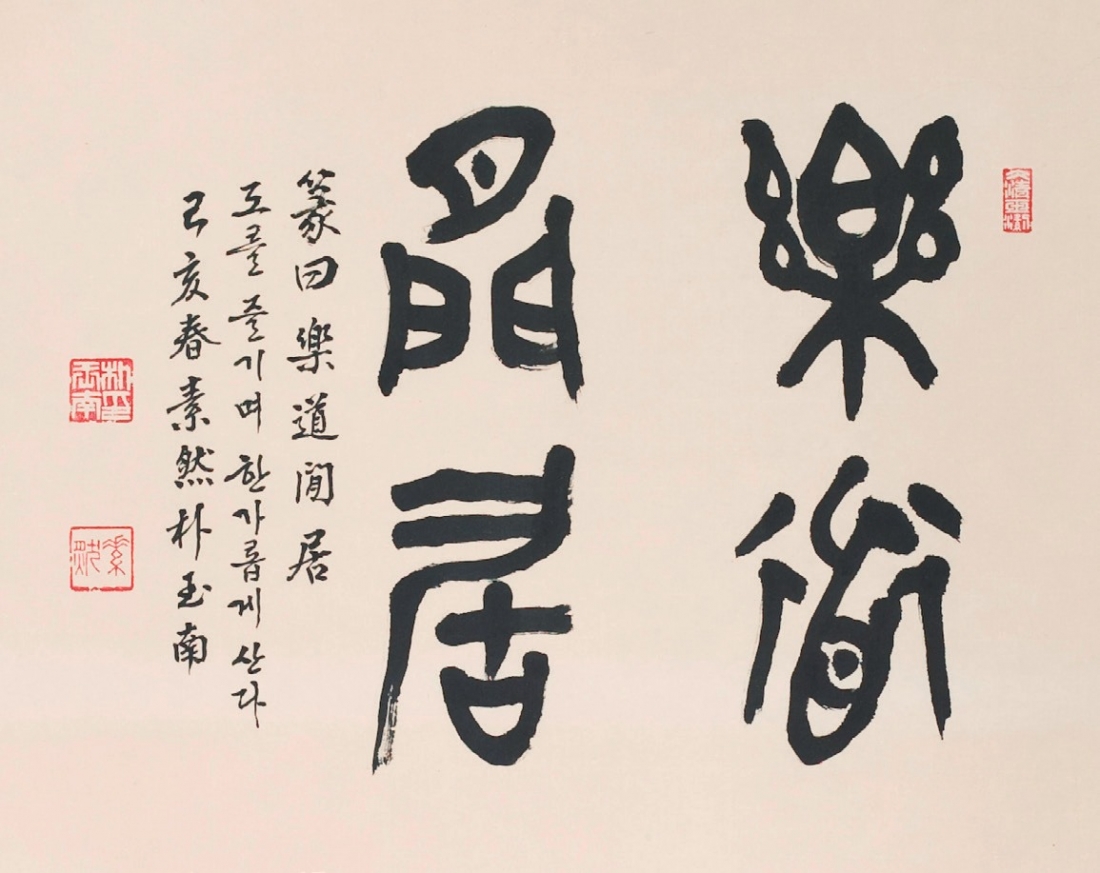 樂道
閒居
篆曰樂道閒居
도를즐기며한가롭게산다
己亥春素然朴玉南
朴印玉南
素然